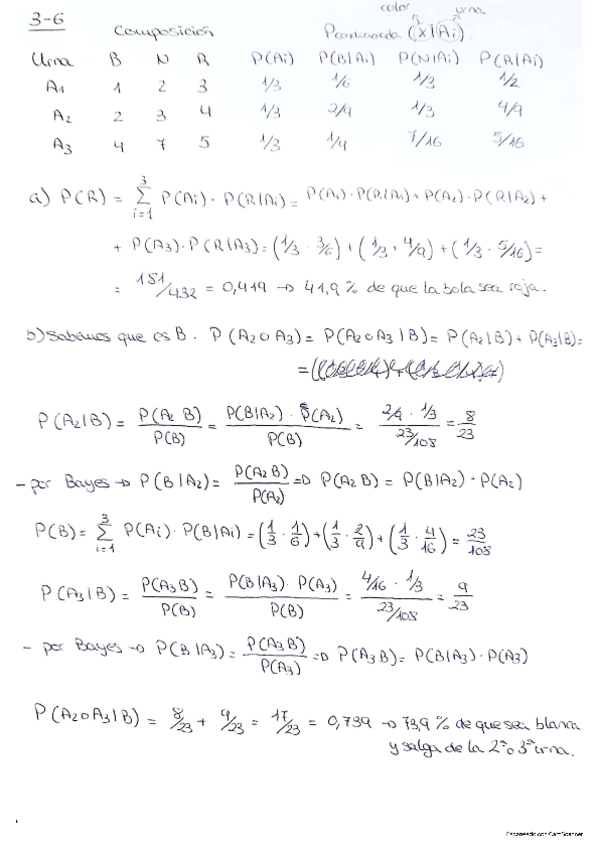 3-6 Composición Pcondicionada (X|Ai) color urna
Urna B N R P(Ai) P(B|Ai) P(N|Ai) P(R|Ai)
A1 1 2 3 1/3 1/6 1/3 1/2
A2 2 3 4 1/3 2/9 1/3 4/9
A3 4 7 5 1/3 1/4 7/16 5/16
a) P(R) = 3 Σ i=1 P(Ai) · P(R|Ai) = P(A1) · P(R|A1) + P(A2) · P(R|A2) +
+ P(A3) · P(R|A3) = (1/3 · 3/6) + (1/3 + 4/9) + (1/3 · 5/16) =
= 181/432 = 0,419 → 41,9 % de que la bola sea roja.
b) Sabemos que es B. P(A2 o A3) = P(A2 o A3 | B) = P(A2|B) + P(A3|B) =
=
P(A2|B) = P(A2 B)/P(B) = P(B|A2) · P(A2)/P(B) = 2/9 · 1/3 / 23/108 = 8/23
- por Bayes → P(B|A2) = P(A2 B)/P(A2) ⇒ P(A2 B) = P(B|A2) · P(A2)
P(B) = 3 Σ i=1 P(Ai) · P(B|Ai) = (1/3 · 1/6) + (1/3 · 2/9) + (1/3 · 4/16) = 23/108
P(A3|B) = P(A3 B)/P(B) = P(B|A3) · P(A3)/P(B) = 4/16 · 1/3 / 23/108 = 9/23
- por Bayes → P(B|A3) = P(A3 B)/P(A3) ⇒ P(A3 B) = P(B|A3) · P(A3)
P(A2 o A3|B) = 8/23 + 9/23 = 17/23 = 0,739 → 73,9 % de que sea blanca
y salga de la 2ª o 3ª urna.
Escaneado con CamScanner